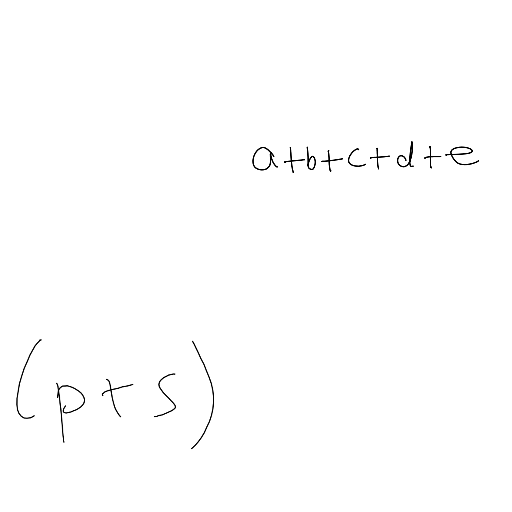 a+b+c+d+e
(p+s)